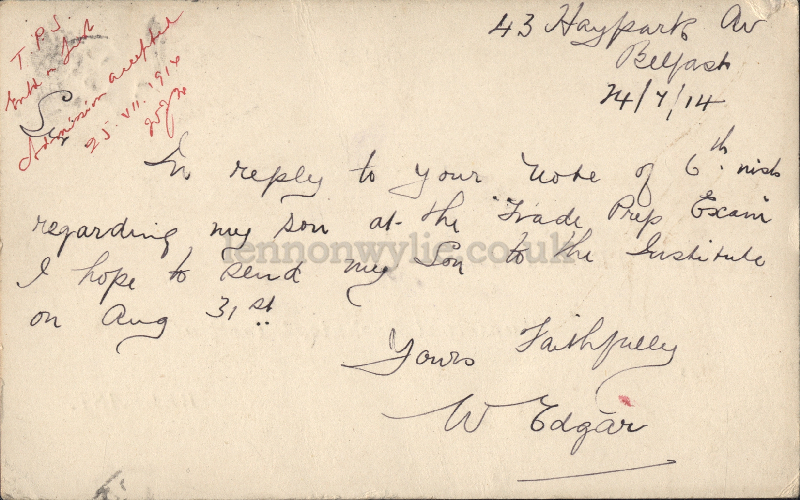 43 Haypark Av
Belfast
24/7/14
T.P.S.
Admission accepted
25. VII. 1914
Sir
In reply to your note of 6th inst
regarding my son at the "Trade Prep Exam"
I hope to send my Son to the Institute
on Aug 31st
Yours Faithfully
W Edgar
lennonwylie.co.uk